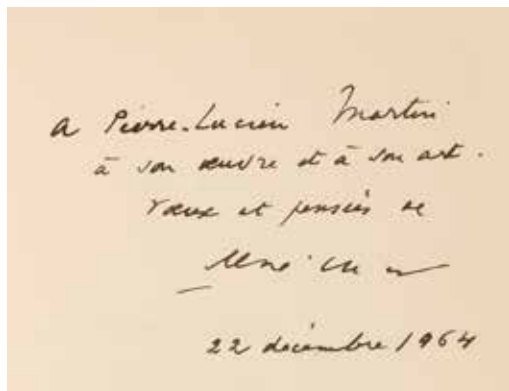 A Pierre-Lucien Martin
à son œuvre et à son art.
Vœux et pensées de
René Char
22 décembre 1964